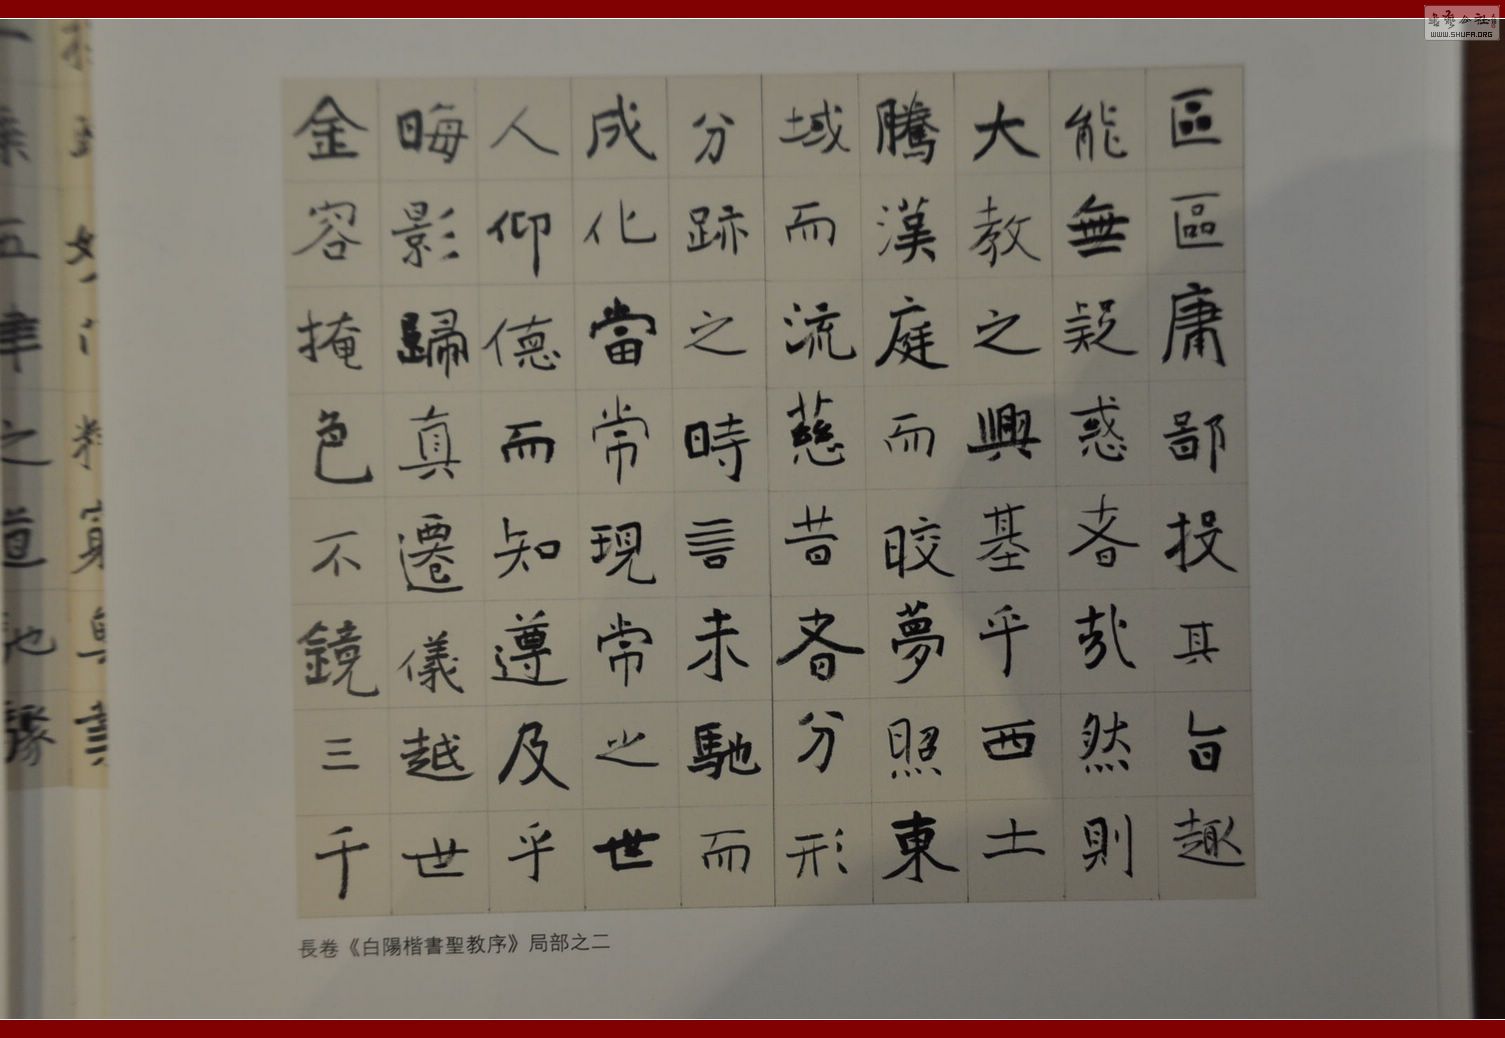 區區庸鄙投其旨趣
能無疑惑者哉然則
大教之興基乎西土
騰漢庭而皎夢照東
域而流慈昔者分形
分跡之時言未馳而
成化當常現常之世
人仰德而知遵及乎
晦影歸真遷儀越世
金容掩色不鏡三千
長卷《白陽楷書聖教序》局部之二
五準之道
WWW.SHUFA.ORG